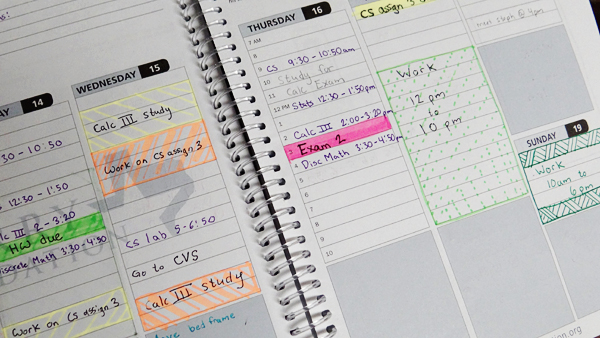 14
30 - 10:50
12:30 - 1:50
Calc III 2 - 3:20
HW due
Discrete Math 3:30 - 4:50
Work on CS assign 3
WEDNESDAY 15
Calc III study
Work on CS assign 3
CS lab 5 - 6:50
Go to CVS
Calc III study
bed frame
THURSDAY 16
7 AM
8
9 CS 9:30 - 10:50am
10 Study for
11 Calc Exam
12 PM Stats 12:30 - 1:50pm
1
2 Calc III 2:00 - 3:20pm
3 Exam 2
4 Disc Math 3:30 - 4:50pm
5
6
7
8
9
10
CS assign 3
Work
12 pm
to
10 pm
@ 4pm
SUNDAY 19
Work
10am to
6pm